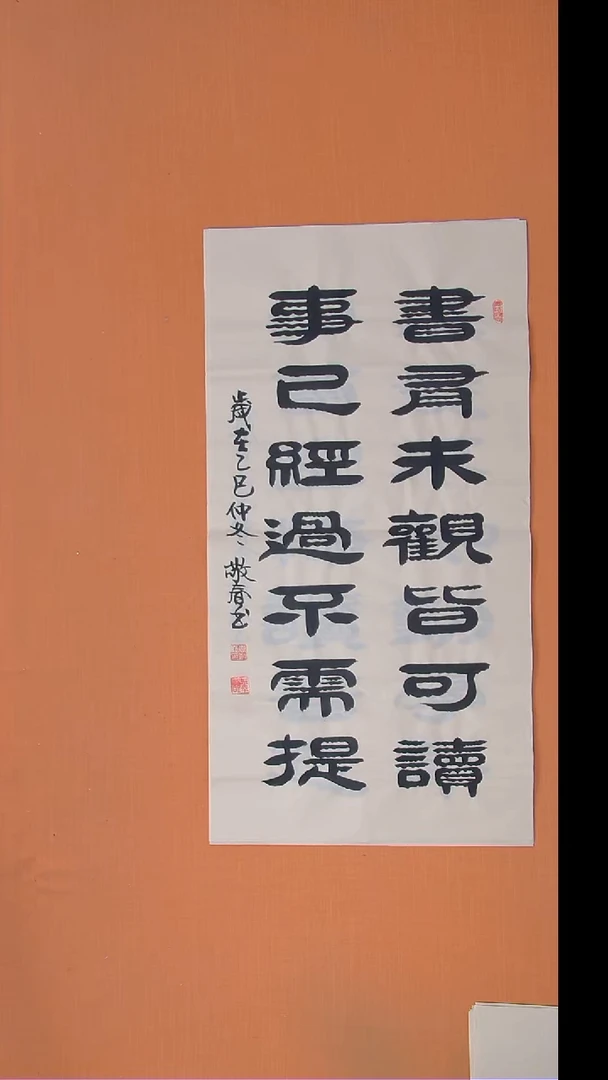 書有未觀皆可讀
事已經過不需提
歲在乙巳仲冬 敬春书